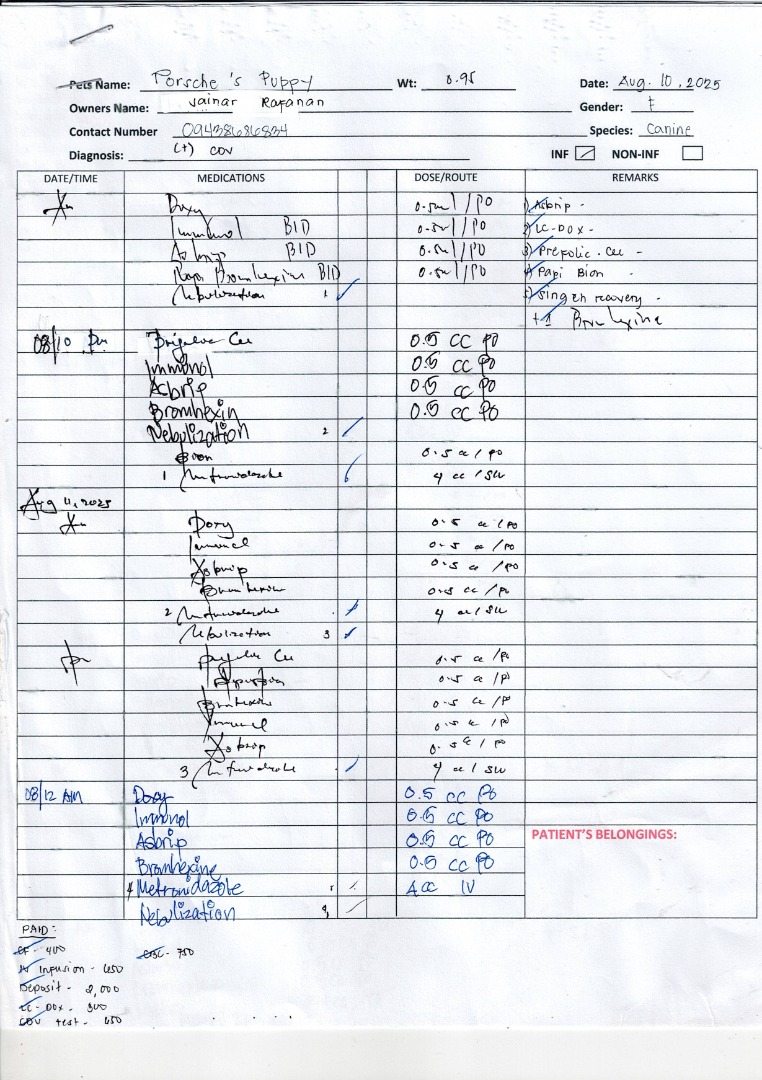 Pets Name: Porsche's Puppy Wt: 0.95 Date: Aug. 10, 2025
Owners Name: Jainar Rafanan Gender: F
Contact Number 09438686834 Species: Canine
Diagnosis: (+) cov INF NON-INF
DATE/TIME MEDICATIONS DOSE/ROUTE REMARKS
Doxy 0.5ml/PO 1) Asbrip -
Immunol BID 0.5ml/PO 2) LC-DOX -
Asbrip BID 0.5ml/PO 3) Prefolic. Cee -
Bromhexine BID 0.5ml/PO 4) Papi Bion -
Nebulization 1 5) Singen recovery -
+1 Bromhexine
08/10 pm Cee 0.5 cc PO
Immunol 0.5 cc PO
Asbrip 0.5 cc PO
Bromhexin 0.5 cc PO
Nebulization 2
Bion 0.5 cc/PO
1 4 cc/
Aug 11, 2025
Doxy 0.5 cc/PO
Immunol 0.5 cc/PO
Asbrip 0.5 cc/PO
Bromhexine 0.5 cc/PO
2 4 cc/
Nebulization 3
pm Cee 0.5 cc/PO
0.5 cc/PO
Bromhexine 0.5 cc/PO
Immunol 0.5 cc/PO
Asbrip 0.5 cc/PO
3 4 cc/
08/12 AM Doxy 0.5 cc PO
Immunol 0.5 cc PO
Asbrip 0.5 cc PO
Bromhexine 0.5 cc PO
4 Metronidazole 4cc IV
Nebulization 4
PATIENT'S BELONGINGS:
PAID:
CF - 400 CBC - 750
IV Infusion - 650
Deposit - 2,000
LC-Dox - 300
COV test - 650